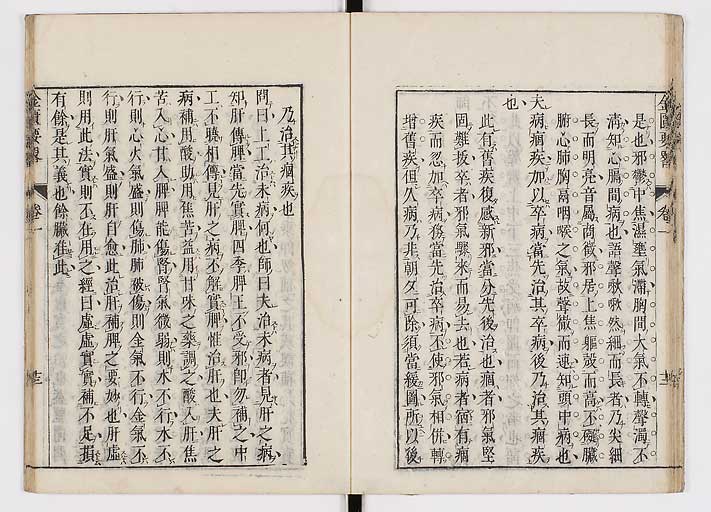 是也邪鬱中焦濕壅氣滯胸間大氣不轉聲濁不
清知心膈間病也語聲啾啾然細而長者乃尖細
長而明亮音屬商徵邪居上焦軀殼而高不礙臟
腑心肺胸膈咽喉之氣故聲微而連知頭中病也
夫病痼疾加以卒病當先治其卒病後乃治其痼疾
也
此有舊疾復感新邪當分先後治也痼者邪氣堅
固難拔卒者邪氣驟來而易去也若病者宿有痼
疾而忽加卒病務當先治卒病不使邪氣相併轉
增舊疾但久病乃非朝夕可除須當緩圖所以後
金匱要畧
卷一
乃治其痼疾也
問曰上工治未病何也師曰夫治未病者見肝之病
知肝傳脾當先實脾四季脾王不受邪卽勿補之中
工不曉相傳見肝之病不解實脾惟治肝也夫肝之
病補用酸助用焦苦益用甘味之藥調之酸入肝焦
苦入心甘入脾脾能傷腎腎氣微弱則水不行水不
行則心火氣盛則傷肺肺被傷則金氣不行金氣不
行則肝氣盛則肝自愈此治肝補脾之要妙也肝虛
則用此法實則不在用之經曰虛虛實實補不足損
有餘是其義也餘臟准此
金匱要畧
卷一